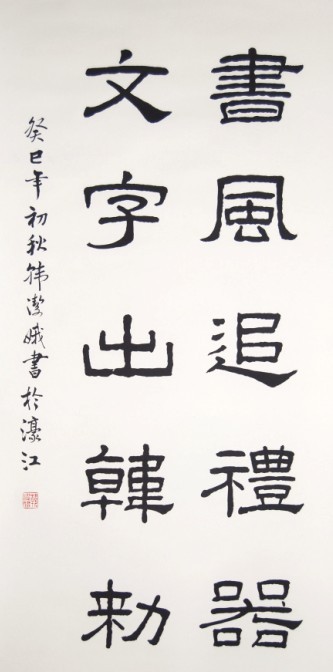 書風追禮器
文字出韓勅
癸巳年初秋韩潔娥書於濠江